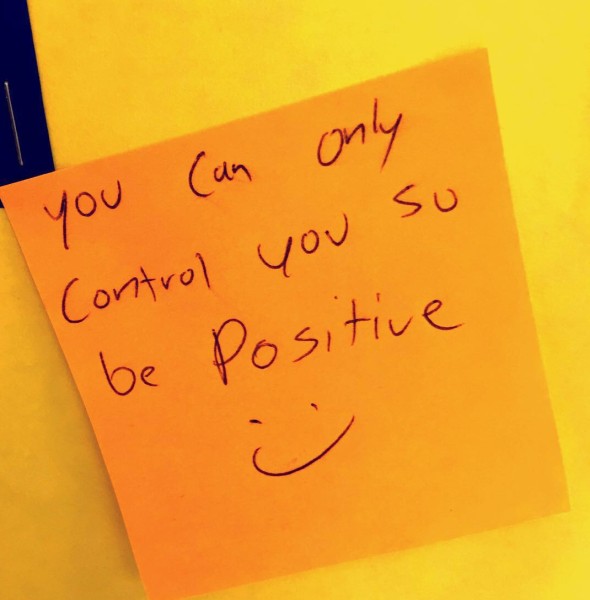 you can only
control you so
be Positive